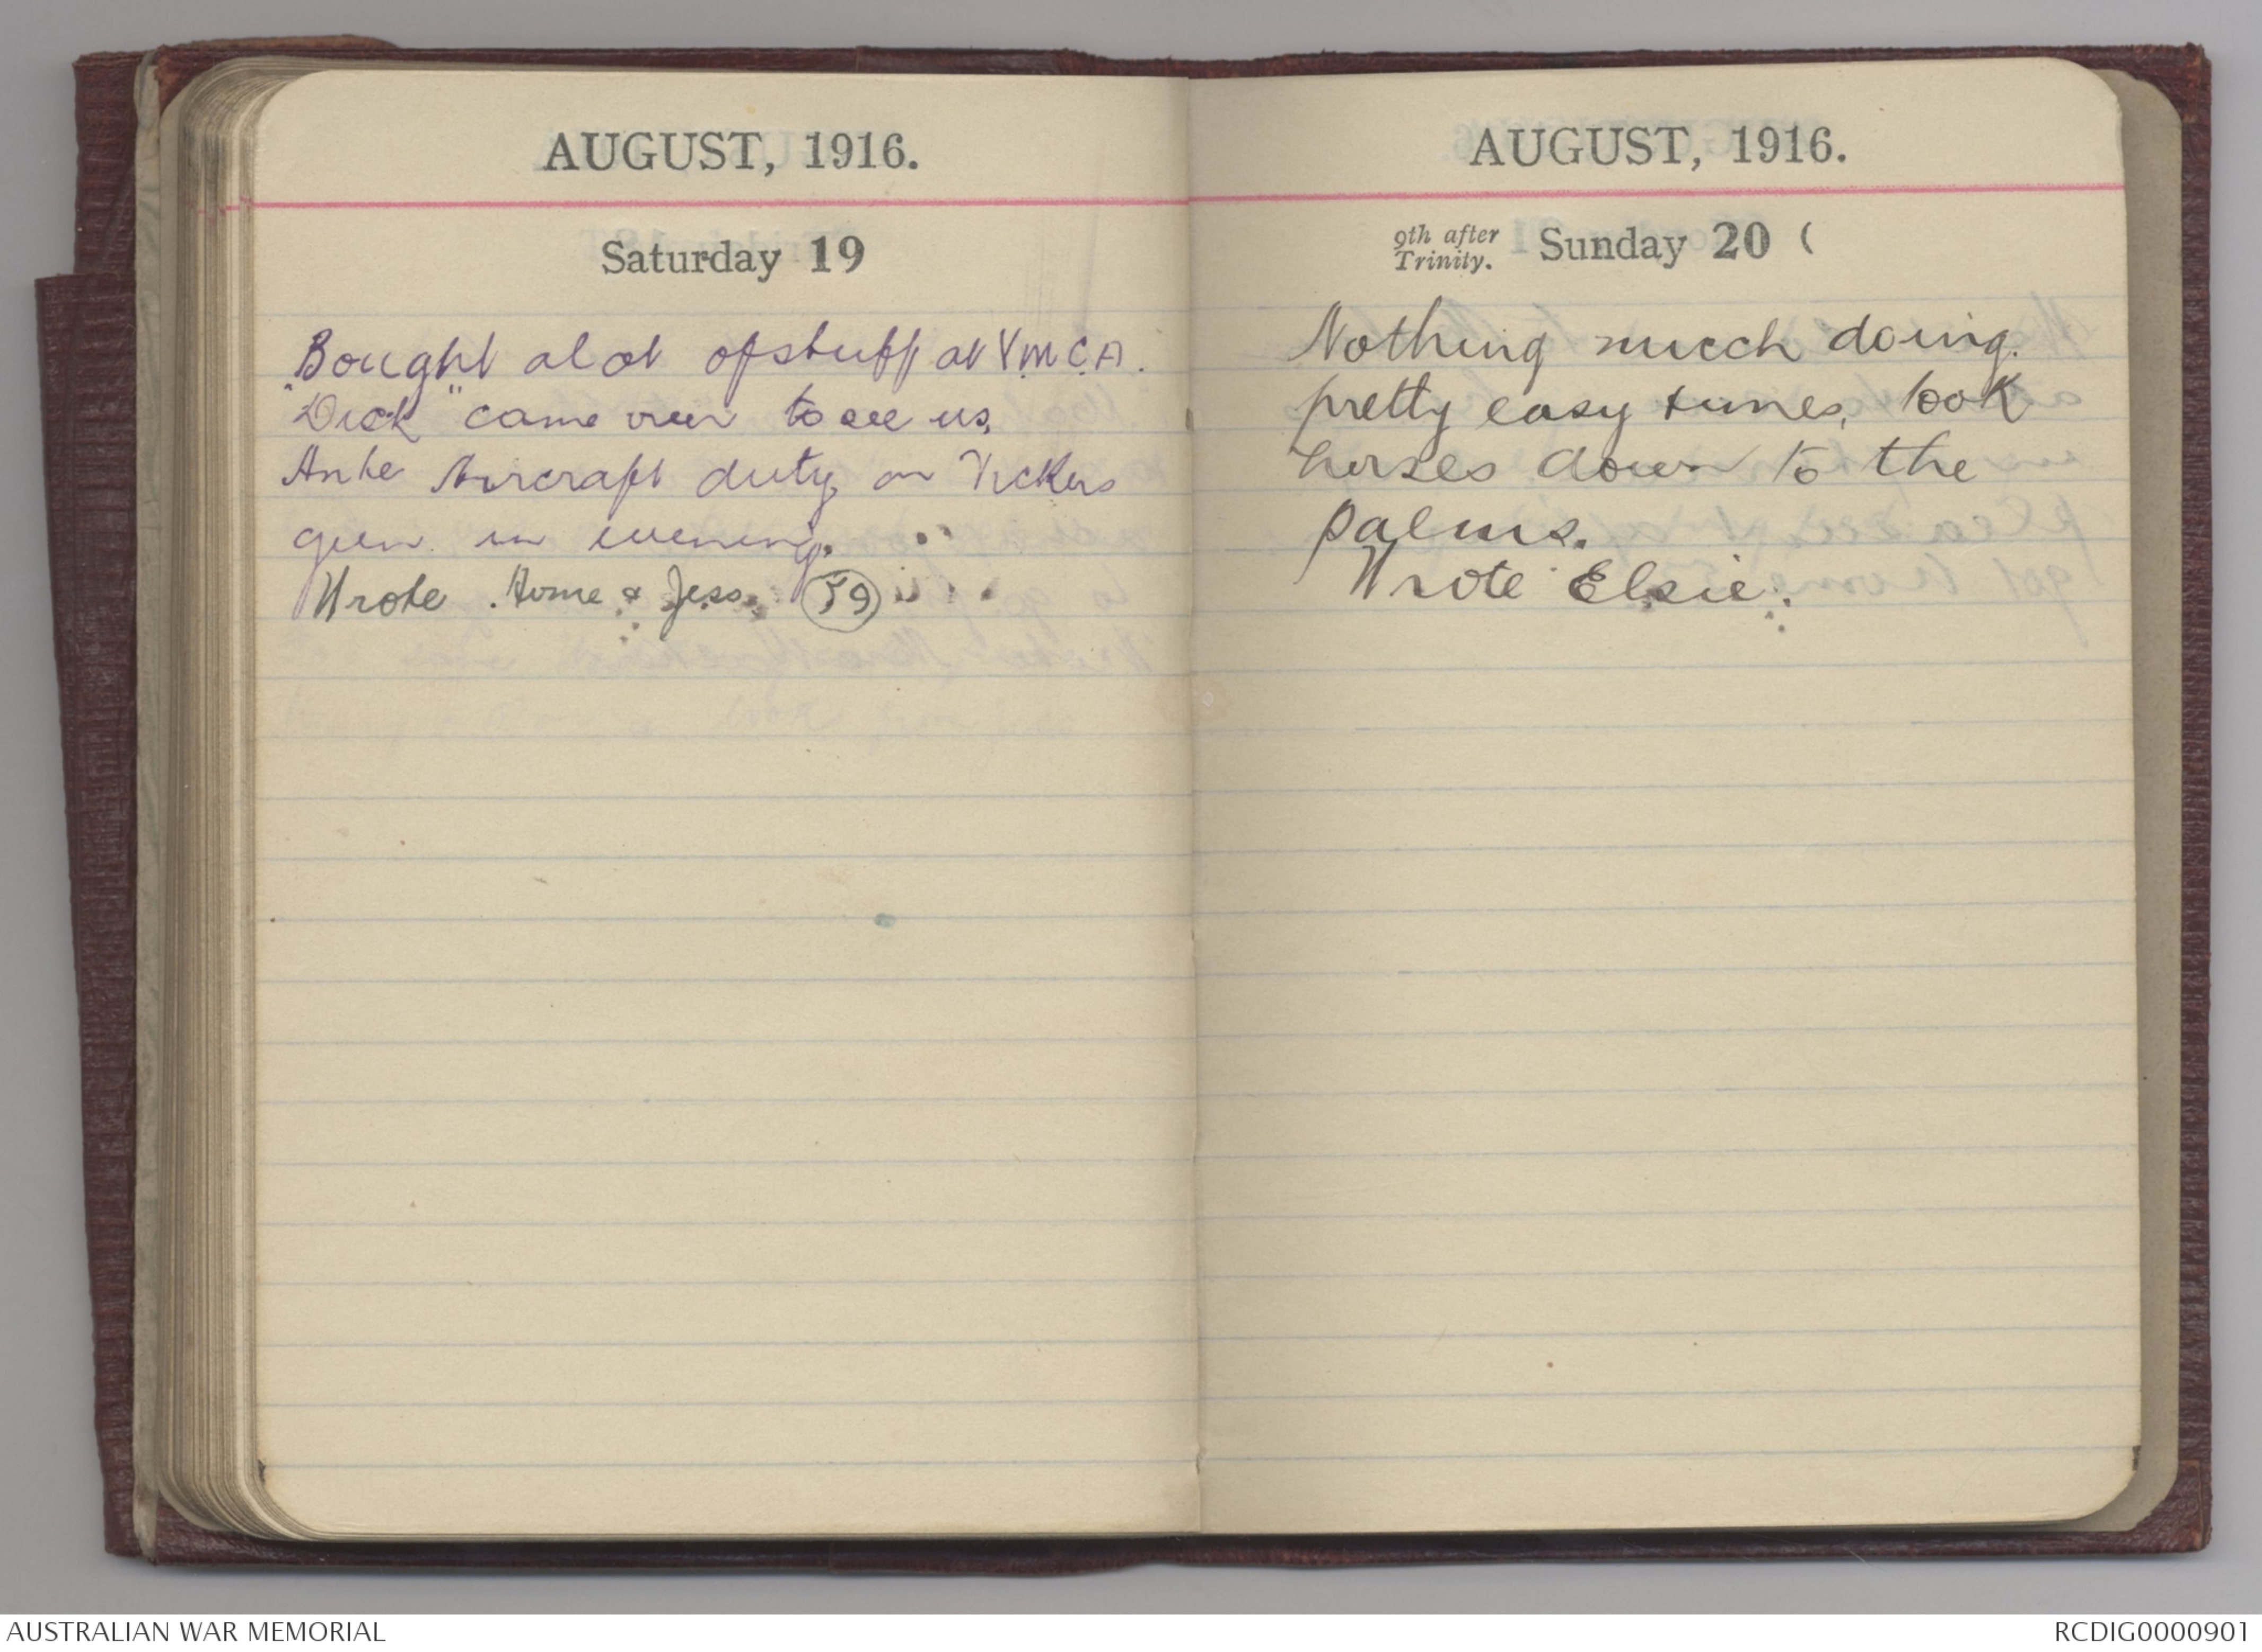 AUGUST, 1916.
Saturday 19
Bought alot of stuff at Y.M.C.A.
"Dick" came over to see us.
Ante Aircraft duty on Vickers
gun in evening.
Wrote Home & Jess. 59
AUGUST, 1916.
9th after
Trinity.
Sunday 20
Nothing much doing.
pretty easy times, took
horses down to the
palms.
Wrote Elsie.
AUSTRALIAN WAR MEMORIAL
RCDIG0000901